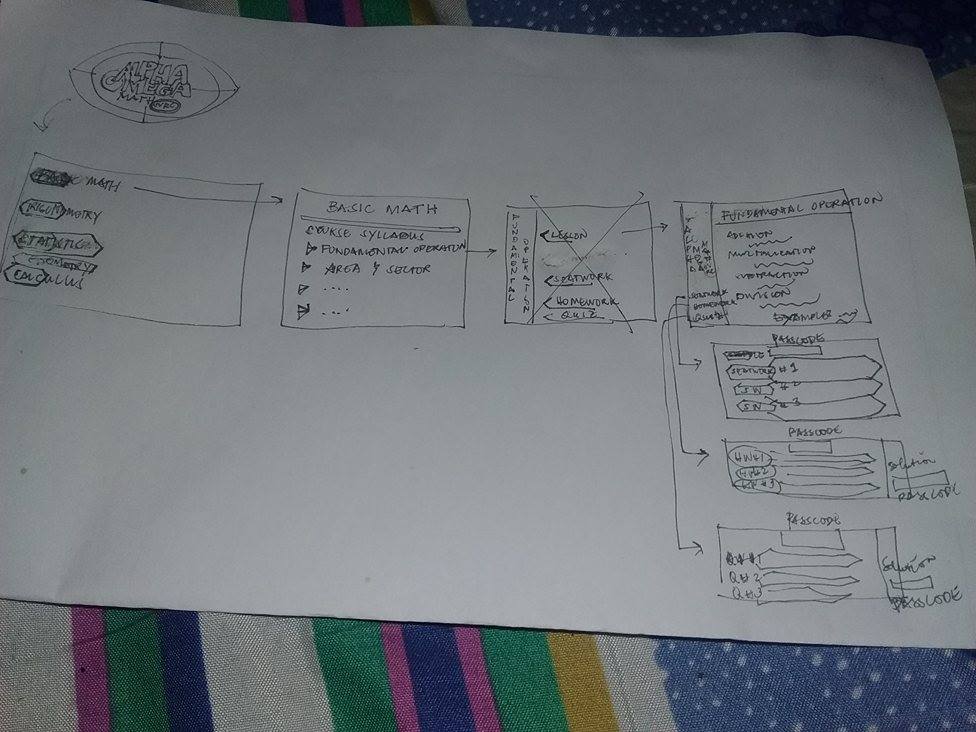 ALPHA
OMEGA
MATH
BASIC MATH
STATISTICS
GEOMETRY
CALCULUS
BASIC MATH
COURSE SYLLABUS
FUNDAMENTAL OPERATION
AREA & SECTOR
....
....
FUNDAMENTAL
OPERATION
LESSON
SEATWORK
HOMEWORK
QUIZ
FUNDAMENTAL OPERATION
MULTIPLICATION
SUBTRACTION
DIVISION
EXAMPLES
SEATWORK
HOMEWORK
PASSCODE
SEATWORK #1
SW #2
SW #3
PASSCODE
HW#1
HW#2
HW#3
Solution
PASSCODE
PASSCODE
Q##1
Q#2
Q#3
Solution
PASSCODE